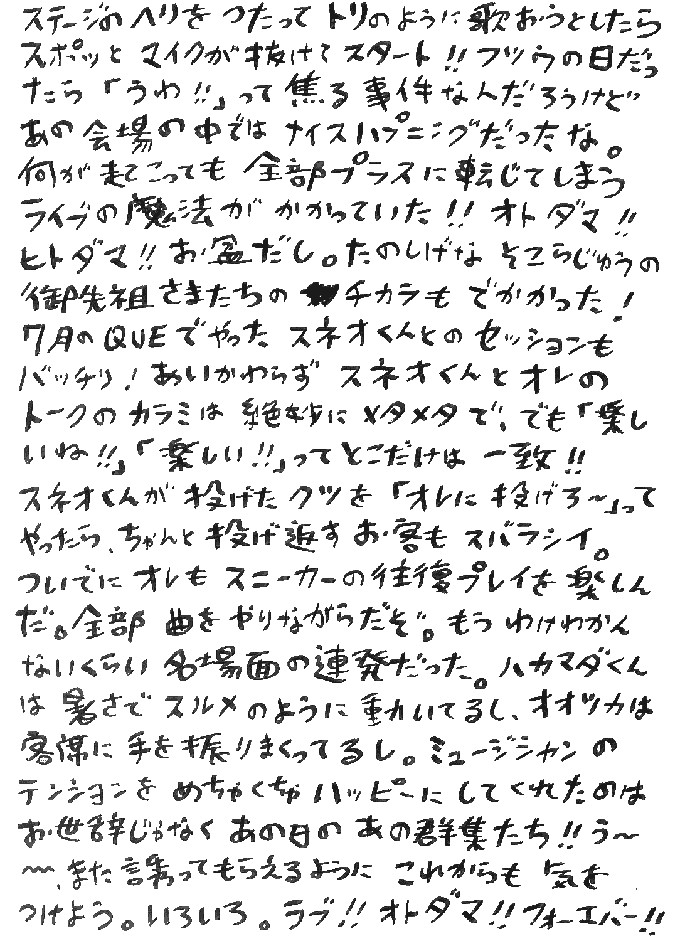 ステージのヘリをつたってトリのように歌おうとしたら
スポッとマイクが抜けてスタート!!フツウの日だっ
たら「うわ!!」って焦る事件なんだろうけど
あの会場の中ではナイスハプニングだったな。
何が起こっても全部プラスに転じてしまう
ライブの魔法がかかっていた!!オトダマ!!
ヒトダマ!!お盆だし。たのしげなそこらじゅうの
御先祖さまたちのチカラもでかかった!
7月のQUEでやったスネオくんとのセッションも
バッチリ!あいかわらずスネオくんとオレの
トークのカラミは絶妙にメタメタで、でも「楽し
いね!!」「楽しい!!」ってとこだけは一致!!
スネオくんが投げたクツを「オレに投げろ〜」って
やったら、ちゃんと投げ返すお客もスバラシイ。
ついでにオレもスニーカーの往復プレイを楽しん
だ。全部曲をやりながらだぞ。もうわけわかん
ないくらい名場面の連発だった。ハカマダくん
は暑さでスルメのように動いてるし、オオツカは
客席に手を振りまくってるし。ミュージシャンの
テンションをめちゃくちゃハッピーにしてくれたのは
お世辞じゃなくあの日のあの群集たち!!う〜
〜〜、また誘ってもらえるようにこれからも気を
つけよう。いろいろ。ラブ!!オトダマ!!フォーエバー!!